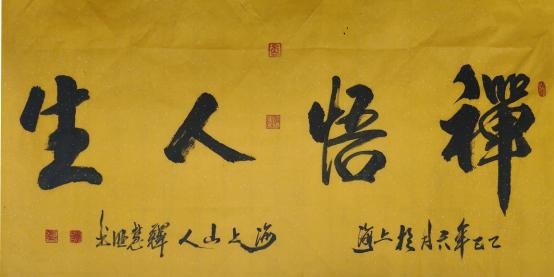 禪悟人生
乙巳年六月於上海
海上山人